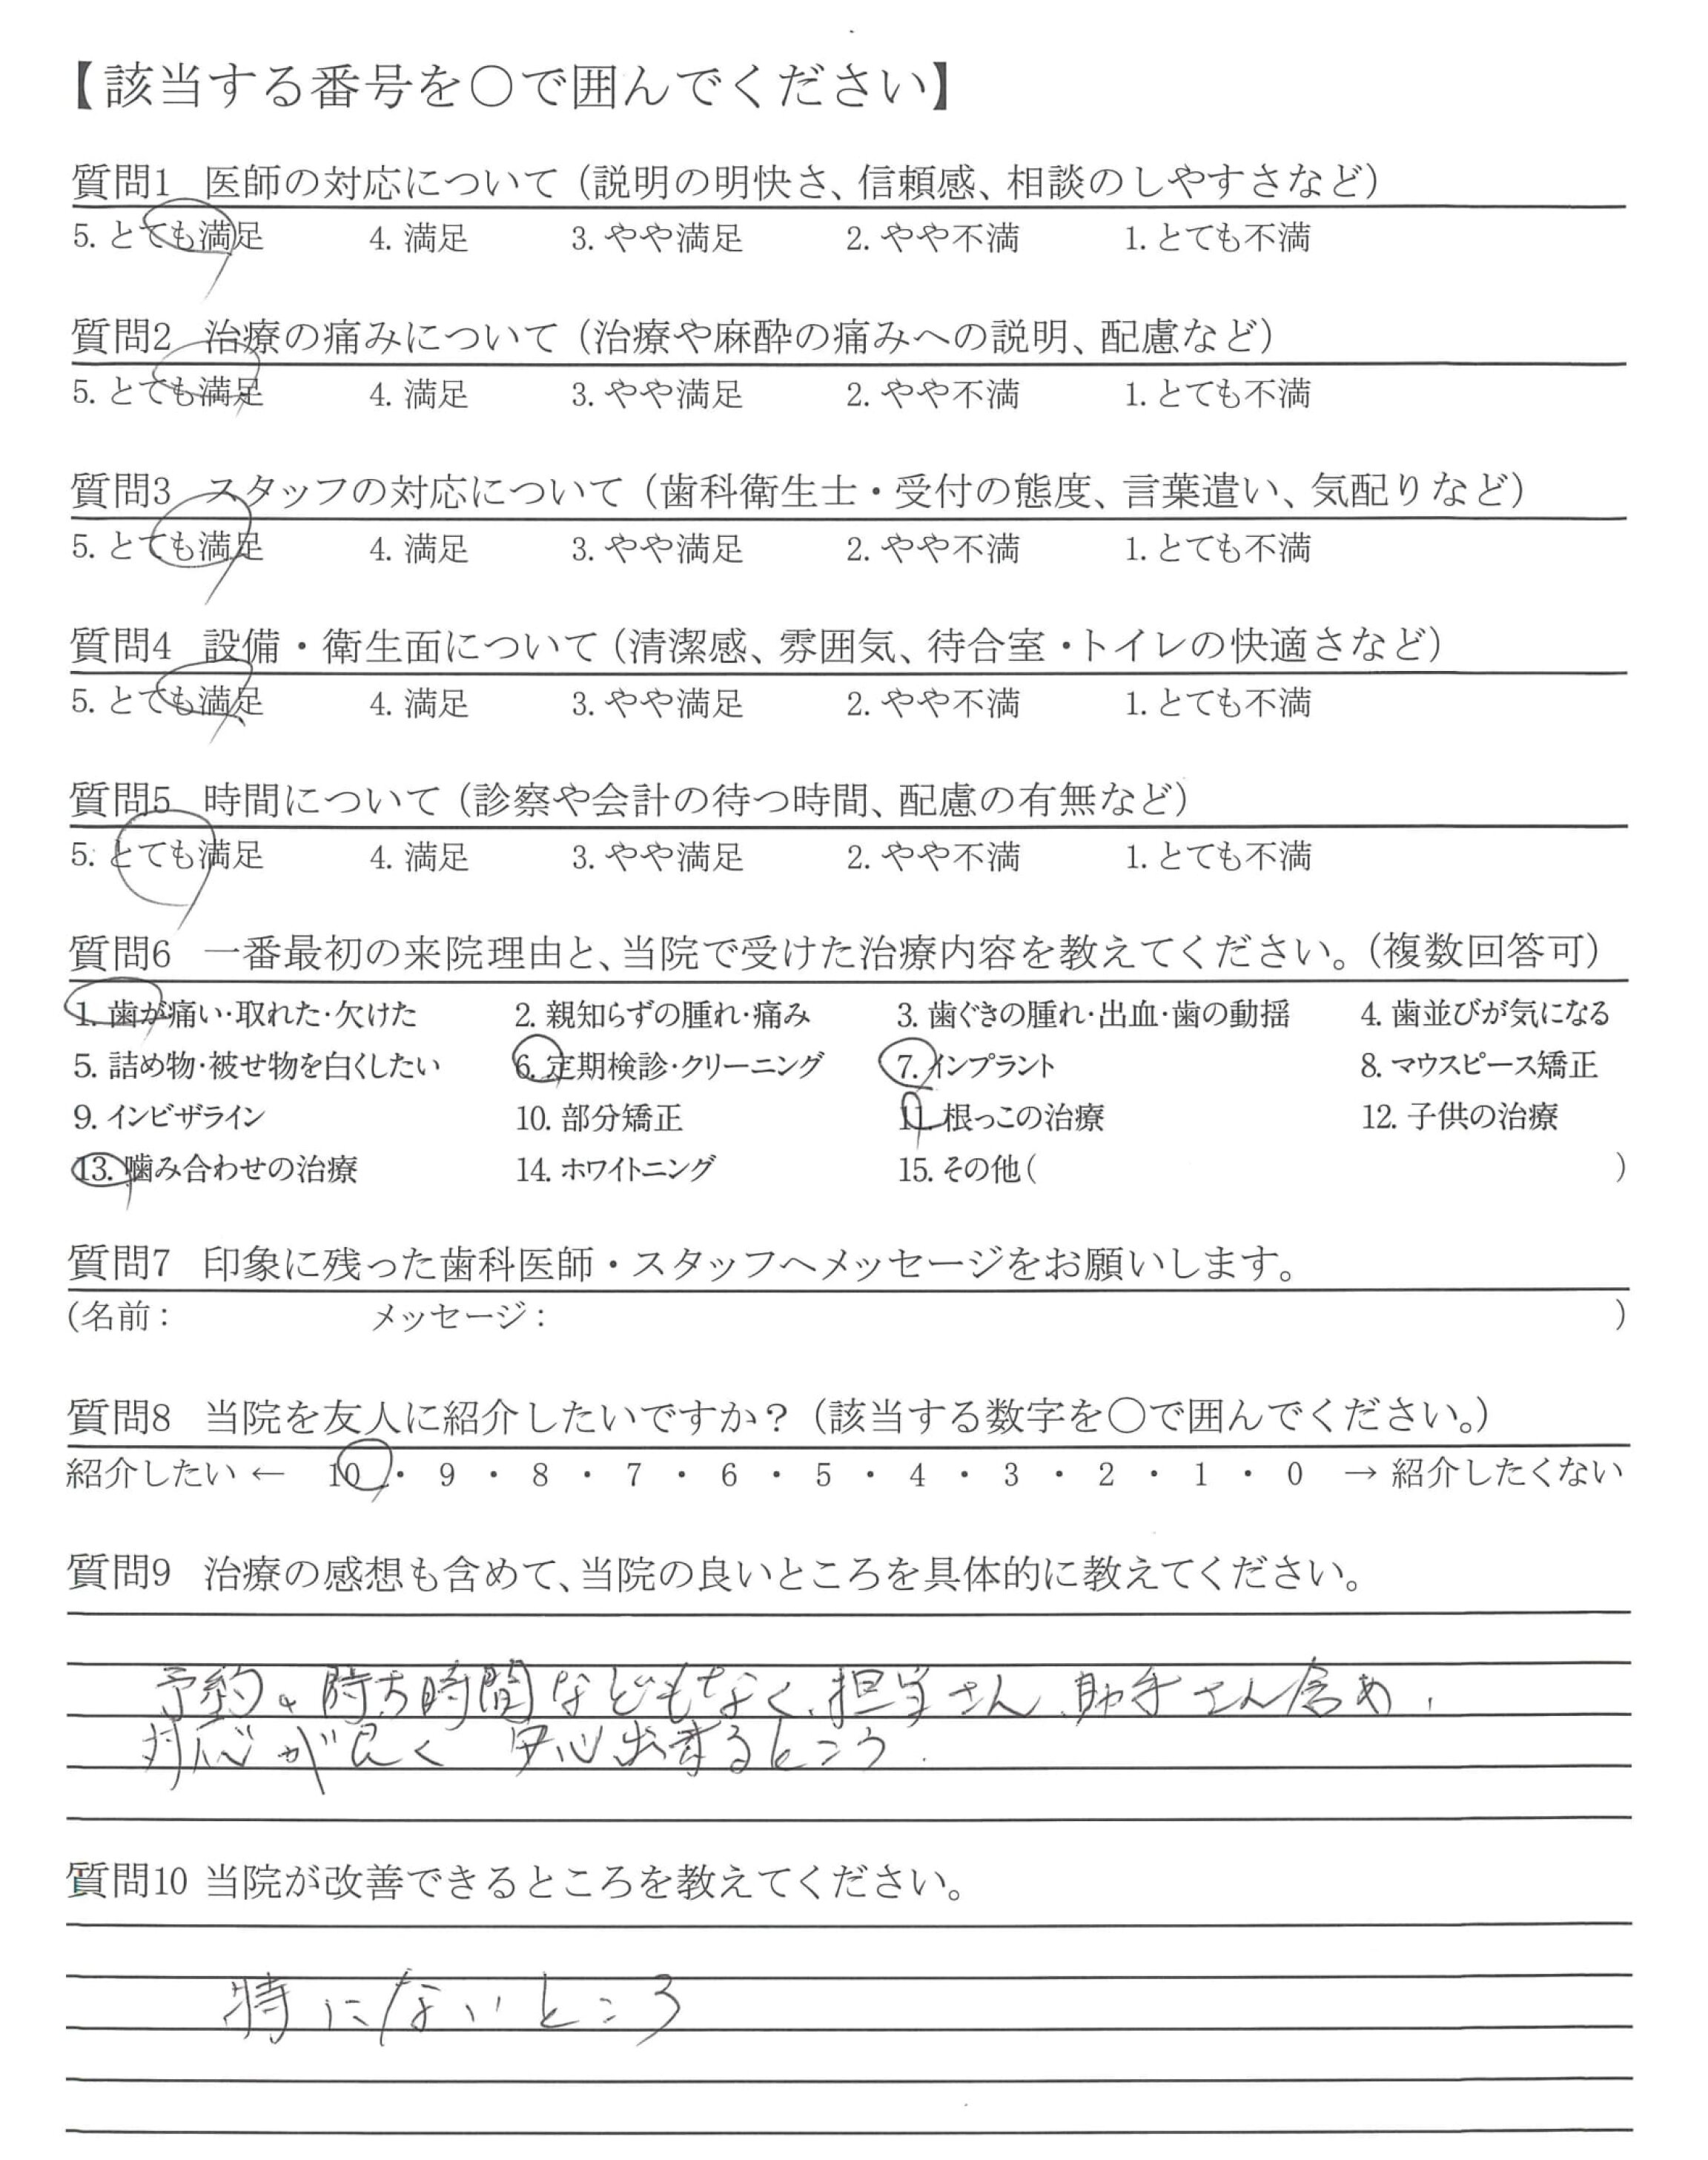 【該当する番号を○で囲んでください】
質問1 医師の対応について（説明の明快さ、信頼感、相談のしやすさなど）
5. とても満足 4. 満足 3. やや満足 2. やや不満 1. とても不満
質問2 治療の痛みについて（治療や麻酔の痛みへの説明、配慮など）
5. とても満足 4. 満足 3. やや満足 2. やや不満 1. とても不満
質問3 スタッフの対応について（歯科衛生士・受付の態度、言葉遣い、気配りなど）
5. とても満足 4. 満足 3. やや満足 2. やや不満 1. とても不満
質問4 設備・衛生面について（清潔感、雰囲気、待合室・トイレの快適さなど）
5. とても満足 4. 満足 3. やや満足 2. やや不満 1. とても不満
質問5 時間について（診察や会計の待つ時間、配慮の有無など）
5. とても満足 4. 満足 3. やや満足 2. やや不満 1. とても不満
質問6 一番最初の来院理由と、当院で受けた治療内容を教えてください。（複数回答可）
1. 歯が痛い・取れた・欠けた 2. 親知らずの腫れ・痛み 3. 歯ぐきの腫れ・出血・歯の動揺 4. 歯並びが気になる
5. 詰め物・被せ物を白くしたい 6. 定期検診・クリーニング 7. インプラント 8. マウスピース矯正
9. インビザライン 10. 部分矯正 11. 根っこの治療 12. 子供の治療
13. 噛み合わせの治療 14. ホワイトニング 15. その他（ ）
質問7 印象に残った歯科医師・スタッフへメッセージをお願いします。
（名前： メッセージ： ）
質問8 当院を友人に紹介したいですか？（該当する数字を○で囲んでください。）
紹介したい ← 10 ・ 9 ・ 8 ・ 7 ・ 6 ・ 5 ・ 4 ・ 3 ・ 2 ・ 1 ・ 0 → 紹介したくない
質問9 治療の感想も含めて、当院の良いところを具体的に教えてください。
予約、待ち時間などもなく、担当さん、助手さん含め、
対応が良く 安心出来るところ.
質問10 当院が改善できるところを教えてください。
特にないところ